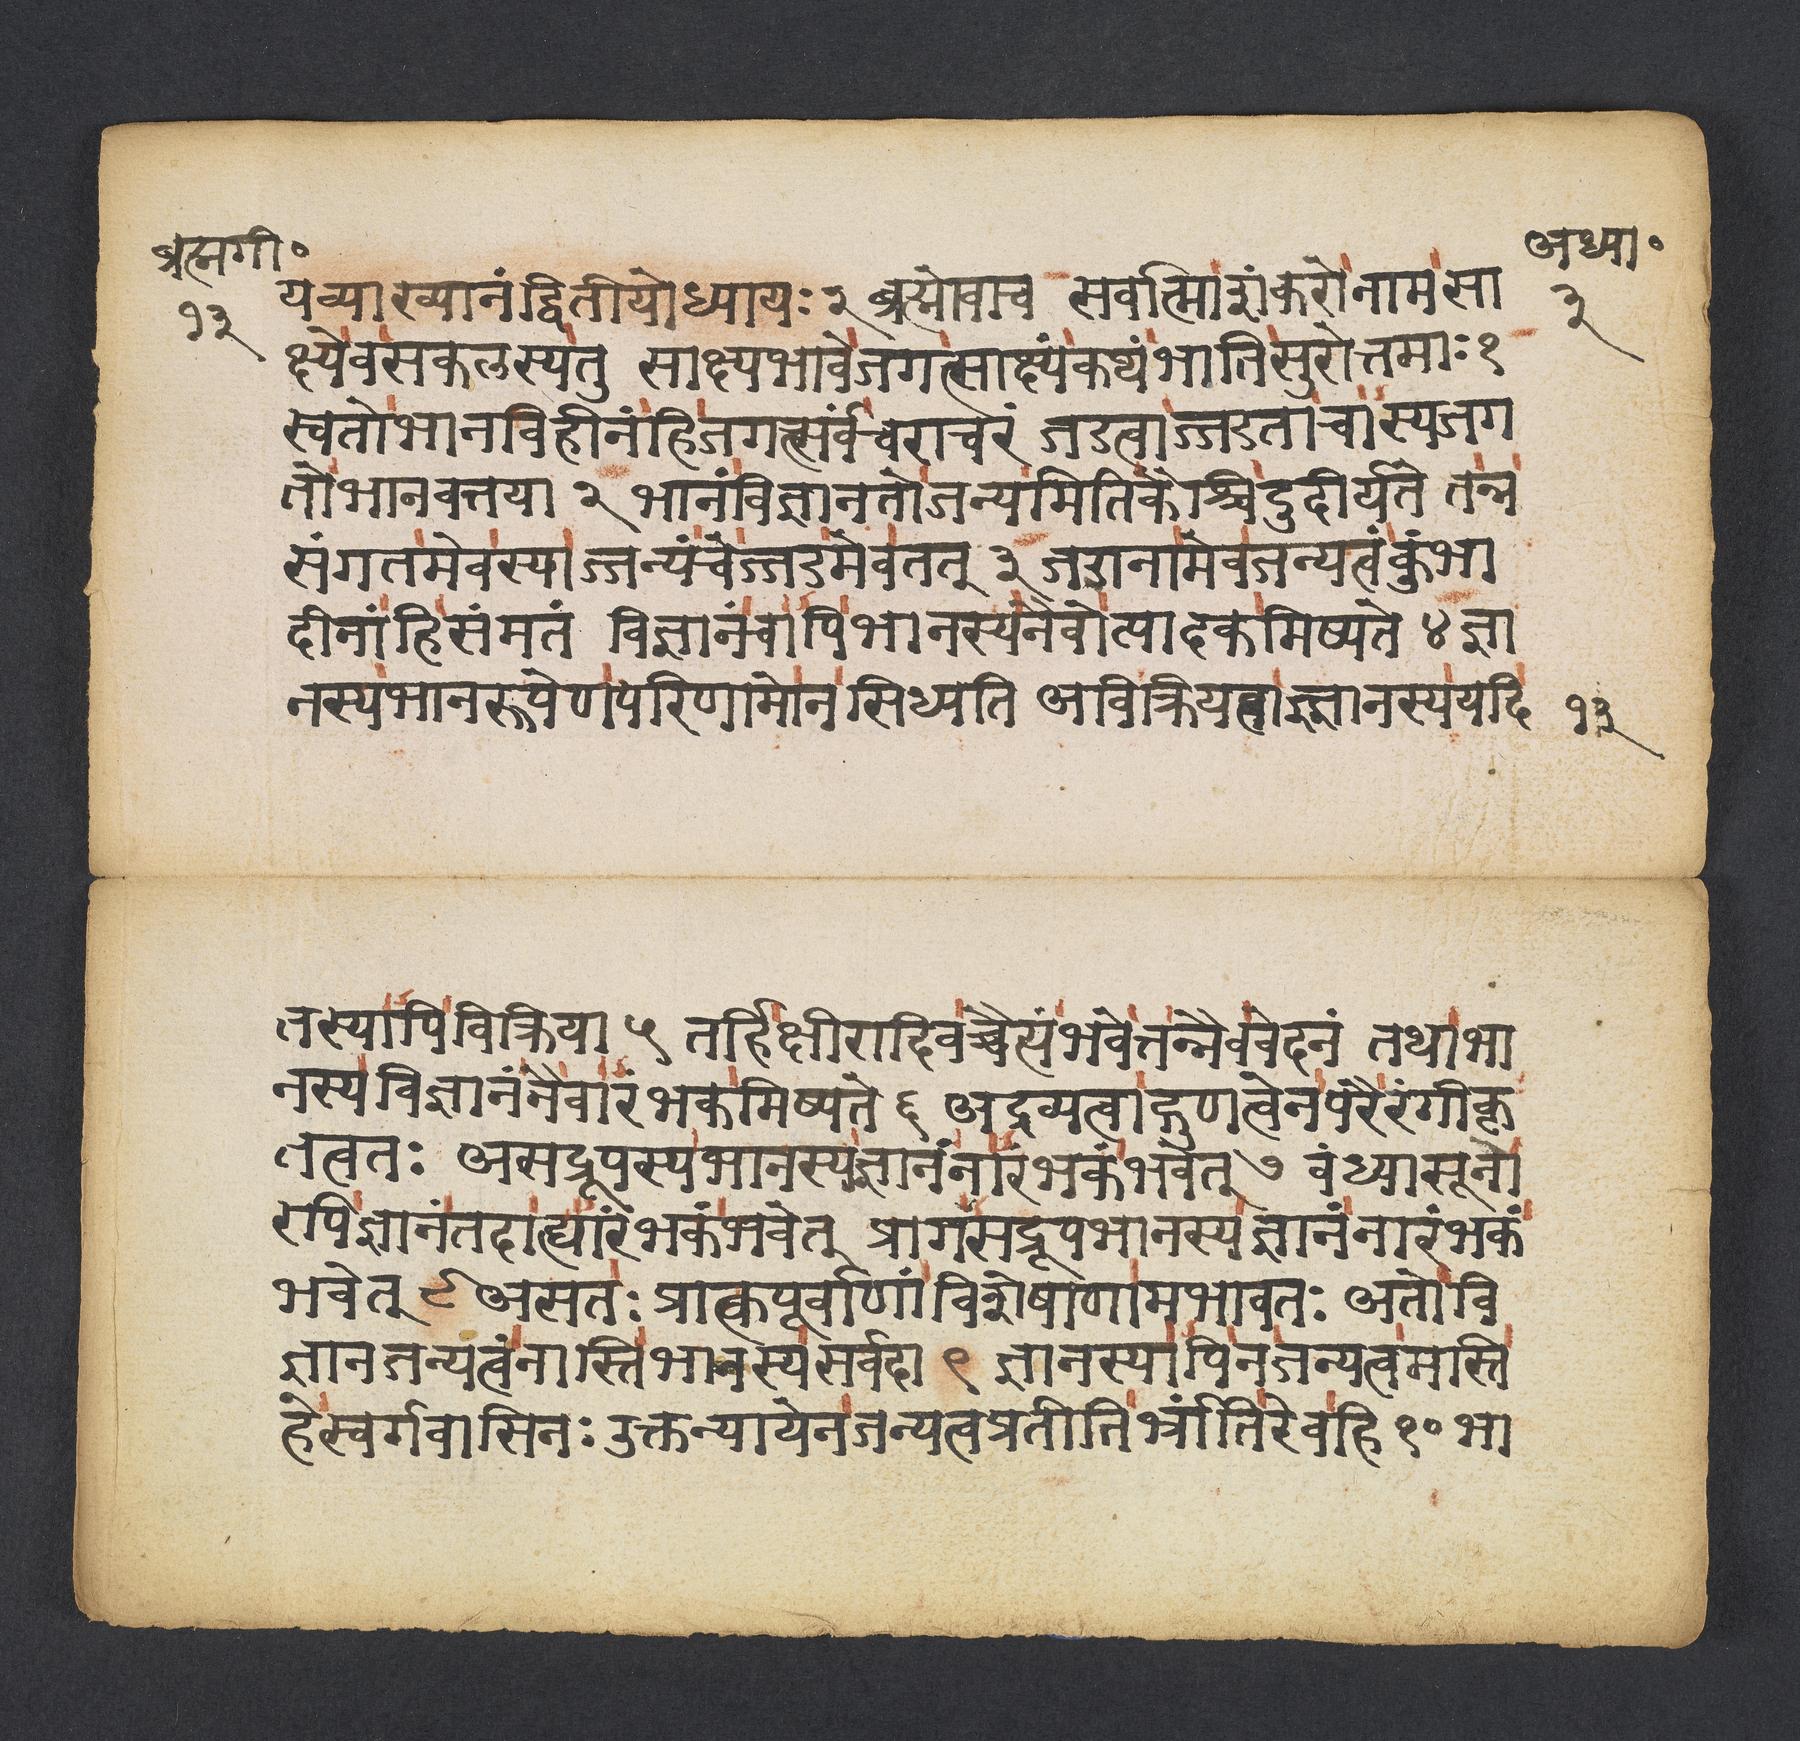 ब्रह्मगी॰
१३
अध्या॰
३
यव्याख्यानंद्वितीयोध्यायः २ ब्रह्मोवाच सर्वात्माशंकरोनामसा
क्ष्येवसकलस्यतु साक्ष्यभावेजगत्साक्ष्यंकथंभातिसुरोत्तमाः १
स्वतोभानविहीनंहिजगत्सर्वंचराचरं जडत्वाज्जडताचास्यजग
तोभानवत्तया २ भानंविज्ञानतोजन्यमितिकैश्चिदुदीर्यते तन्न
संगतमेवस्याज्जन्यंचेज्जडमेवतत् ३ जडानामेवजन्यत्वंकुंभा
दीनांहिसंमतं विज्ञानंचापिभानस्यनैवोत्पादकमिष्यते ४ ज्ञा
नस्यभानरूपेणपरिणामोनसिध्यति अविक्रियत्वाज्ज्ञानस्ययदि
१३
तस्यापिविक्रिया ५ तर्हिक्षीरादिवच्चैत्यंभवेत्तन्नैववेदनं तथाभा
नस्यविज्ञानंनैवारंभकमिष्यते ६ अद्रव्यत्वाद्गुणत्वेनपरैरंगीकृ
तत्वतः असद्रूपस्यभानस्यज्ञानंनारंभकंभवेत् ७ वंध्यासूनो
रपिज्ञानंतदाह्यारंभकंभवेत् प्रागसद्रूपभानस्यज्ञानंनारंभकं
भवेत् ८ असतः प्राक्त्वपूर्वाणांविशेषाणामभावतः अतोवि
ज्ञानजन्यत्वंनास्तिभानस्यसर्वदा ९ ज्ञानस्यापिनजन्यत्वमस्ति
हेस्वर्गवासिनः उक्तन्यायेनजन्यत्वप्रतीतिर्भ्रांतिरेवहि १० भा